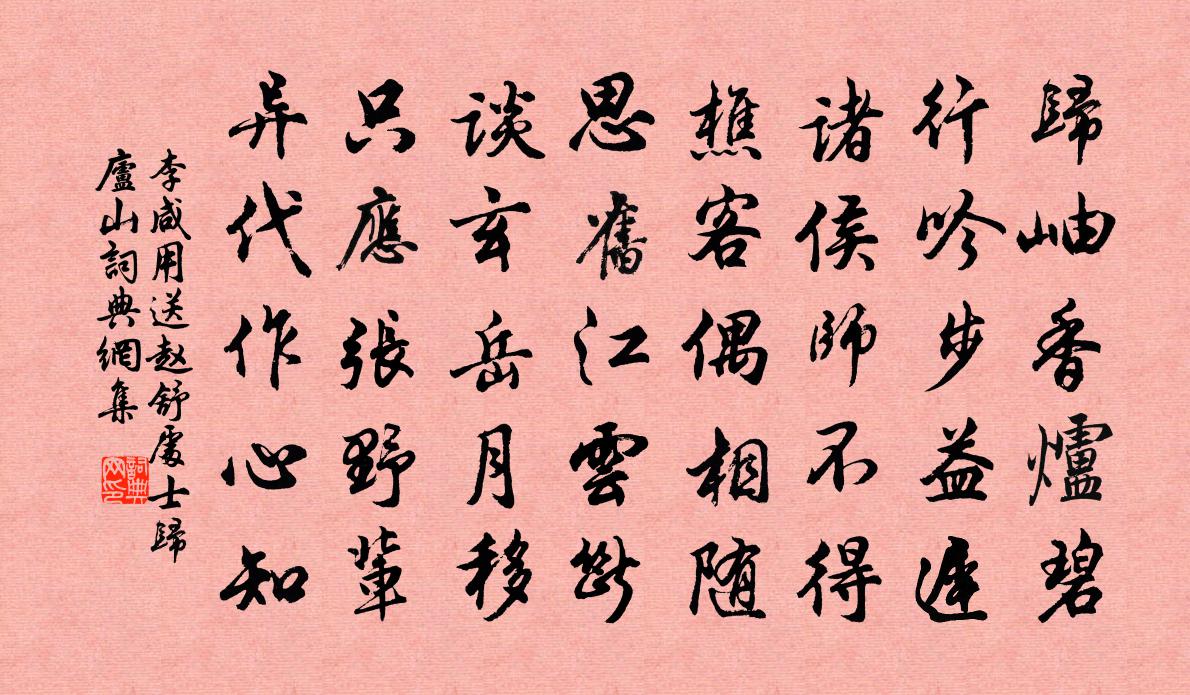 歸岫香爐碧
行吟步益遲
諸侯師不得
樵客偶相随
思舊江雲斷
談玄岳月移
只應張野輩
异代作心知
李咸用送赵舒處士歸
廬山詞典網集
詞典网印